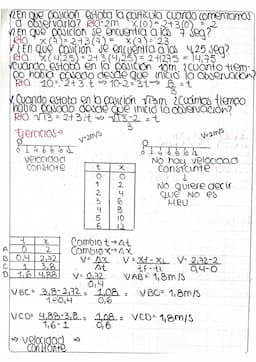 ¿En qué posición estaba la partícula cuando comenzamos
a observarla? Rta 2m x(0)=2+3(0)=2
¿En qué posición se encuentra a las 7 seg?
Rta x(7)=2+3(7)= x(7)=23
¿En qué posición se encuentra a los 4,25 seg?
Rta x(4,25)=2+3(4,25)=2+12,75=14,75
¿Cuándo estaba en la posición 10m ¿cuánto tiem-
po había pasado desde que inició la observación?
Rta 10=2+3.t ⇒ 10-2=3t ⇒ 8/3=t
¿Cuando estaba en la posición √13m ¿cuántos tiempo
había pasado desde que inició la observación?
Rta √13=2+3t ⇒ √13-2/3=t
Ejercicios
V=2m/s
V=2m/s
0 1 4 6 8
velocidad
constante
No hay velocidad
constante
↓
No quiere decir
que no es
MRU
t x
0 0
1 2
2 4
3 6
4 8
5 10
6 12
t x
A 0 2
B 0,4 2,72
C 1 3,8
D 1,6 4,88
Cambio t→Δt
Cambio x→Δx
V=Δx/Δt V=xf-xi/tf-ti V=2,72-2/0,4-0
V=0,72/0,4 VAB=1,8m/s
VBC=3,8-2,72/1-0,4=1,08/0,6= VBC=1,8m/s
VCD=4,88-3,8/1,6-1=1,08/0,6= VCD=1,8m/s
⇒ velocidad ⇐
constante